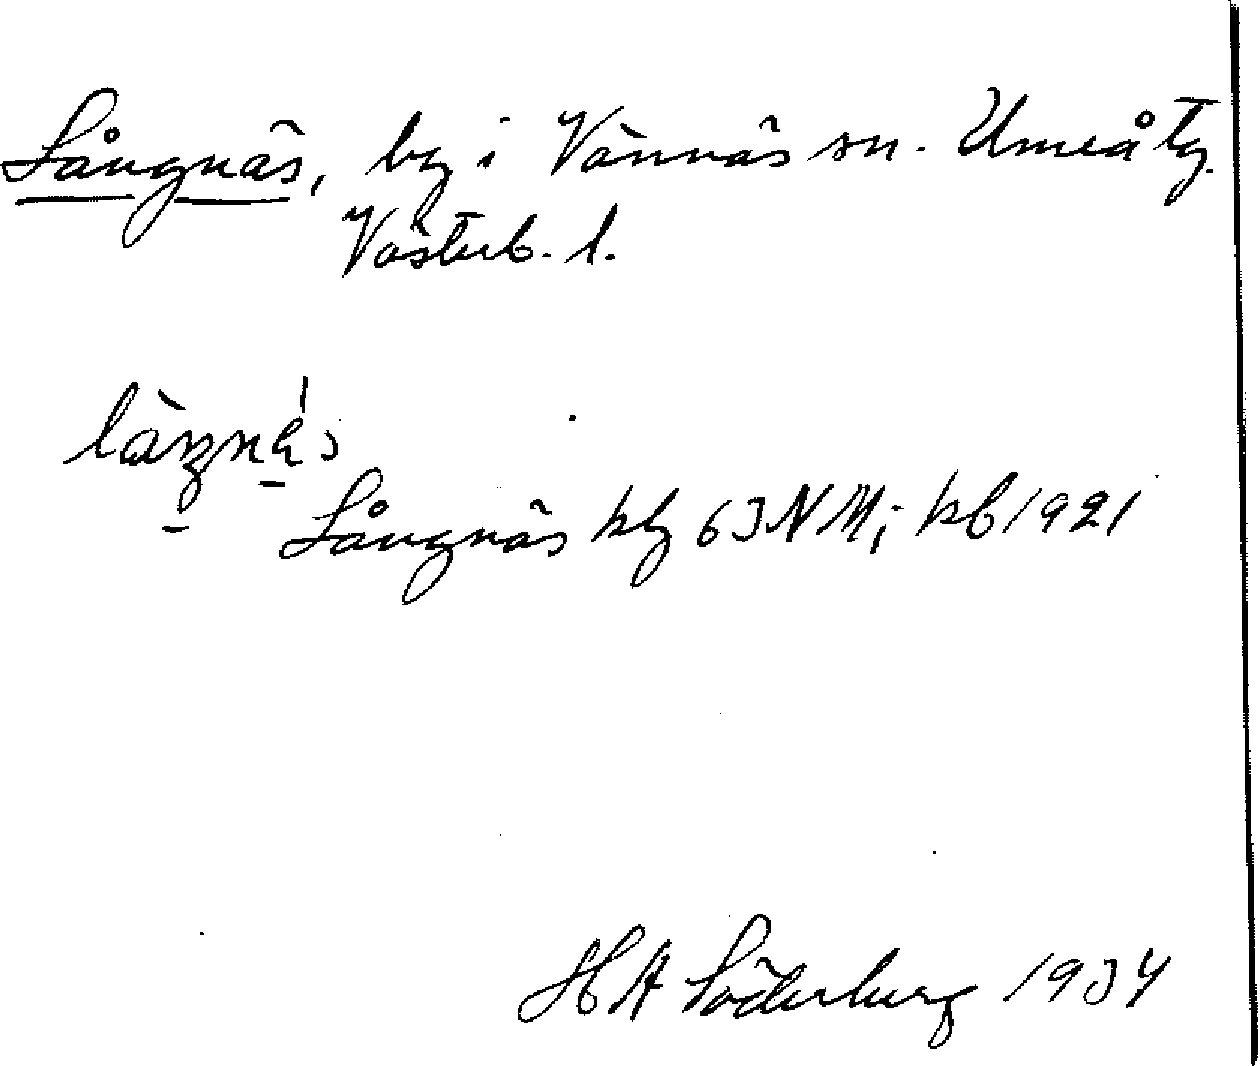 Långnäs, by i Vännäs sn. Umeå tg.
Västerb. l.
Långnäs kbl 63 NM; kb 1921
HA Söderberg 1934